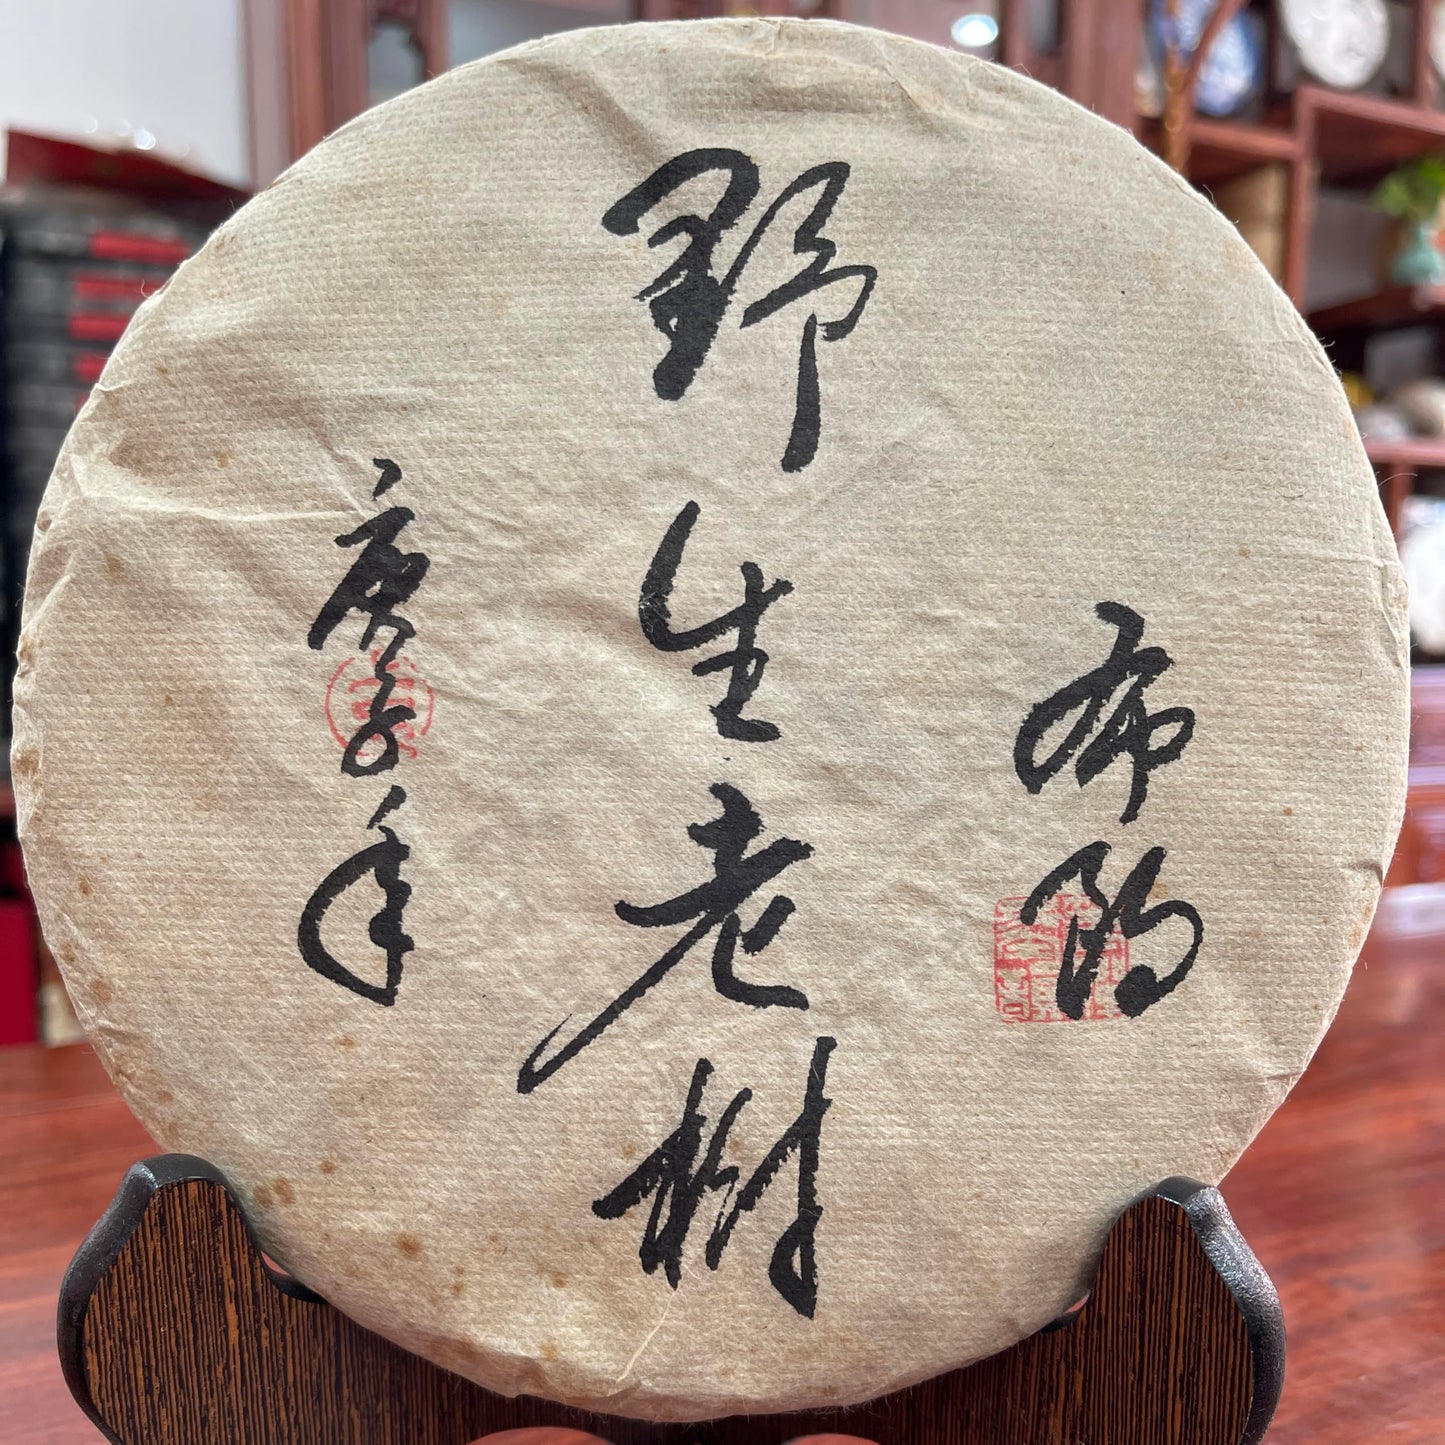 布朗
野生老树
庚子年